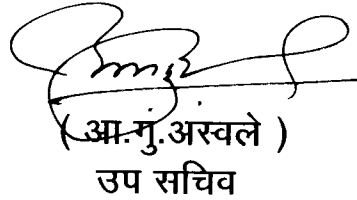 ( आ.गुं.अस्वले )
उप सचिव